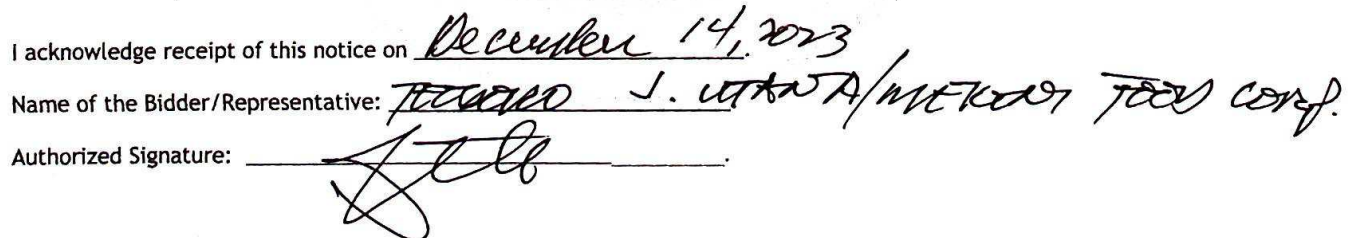 I acknowledge receipt of this notice on December 14, 2023.
Name of the Bidder/Representative: J. / FOOD CORP.
Authorized Signature: .